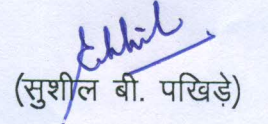 (सुशील बी. पखिड़े)